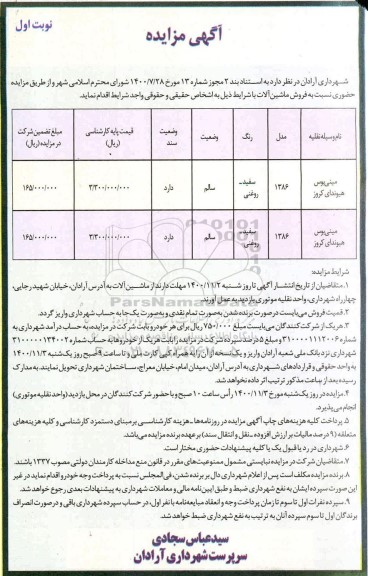 نوبت اول
آگهی مزایده
شهرداری آرادان در نظر دارد به استناد بند ۲ مجوز شماره ۱۳ مورخ ۱۴۰۰/۷/۲۸ شورای محترم اسلامی شهر و از طریق مزایده
حضوری نسبت به فروش ماشین آلات با شرایط ذیل به اشخاص حقیقی و حقوقی واجد شرایط اقدام نماید.
نام وسیله نقلیه مدل رنگ وضعیت وضعیت سند قیمت پایه کارشناسی (ریال) مبلغ تضمین شرکت در مزایده (ریال)
مینی بوس هیوندای کروز ۱۳۸۶ سفید روغنی سالم دارد ۳/۳۰۰/۰۰۰/۰۰۰ ۱۶۵/۰۰۰/۰۰۰
مینی بوس هیوندای کروز ۱۳۸۶ سفید روغنی سالم دارد ۳/۳۰۰/۰۰۰/۰۰۰ ۱۶۵/۰۰۰/۰۰۰
شرایط مزایده:
۱. متقاضیان از تاریخ انتشار آگهی تا روز شنبه ۱۴۰۰/۱۱/۲ مهلت دارند از ماشین آلات به آدرس آرادان، خیابان شهید رجایی،
چهارراه شهرداری، واحد نقلیه موتوری بازدید به عمل آورند.
۲. قیمت فروش می‌بایست در صورت برنده شدن به صورت تمام نقدی و به صورت یک جا به حساب شهرداری واریز گردد.
۳. هر یک از شرکت کنندگان می‌بایست مبلغ ۷۵۰/۰۰۰ ریال برای هر خودرو بابت شرکت در مزایده، به حساب درآمد شهرداری به
شماره ۳۱۰۰۰۰۱۱۱۲۰۰۶ و مبلغ ۵ درصد سپرده شرکت در مزایده را بابت هر یک از خودروها به حساب شماره ۳۱۰۰۰۰۰۱۳۴۰۰۲
شهرداری نزد بانک ملی شعبه آرادان واریز و یک نسخه از آن را به همراه کپی کارت ملی و تا ساعت ۹ صبح روز یک شنبه ۱۴۰۰/۱۱/۳
به واحد حقوقی و قراردادهای شهرداری به آدرس آرادان، میدان امام، خیابان معراج، ساختمان شهرداری تحویل نمایند. به مدارک
رسیده بعد از ساعت مذکور ترتیب اثر داده نخواهد شد.
۴. مزایده در روز یک شنبه مورخ ۱۴۰۰/۱۱/۳ رأس ساعت ۱۰ صبح و با حضور شرکت کنندگان در محل بازدید (واحد نقلیه موتوری)
انجام می‌پذیرد.
۵. پرداخت کلیه هزینه‌های چاپ آگهی مزایده در روزنامه‌ها، هزینه کارشناسی بر مبنای دستمزد کارشناسی و کلیه هزینه‌های
متعلقه (۹ درصد مالیات بر ارزش افزوده ـ نقل و انتقال سند) بر عهده برنده مزایده می‌باشد.
۶. شهرداری در رد یا قبول یک یا کلیه پیشنهادات حضوری مختار است.
۷. متقاضیان شرکت در مزایده نبایستی مشمول ممنوعیت‌های مقرر در قانون منع مداخله کارمندان دولتی مصوب ۱۳۳۷ باشند.
۸. برنده مزایده مکلف است پس از اعلام شهرداری دال بر برنده شدن، فی‌المجلس نسبت به پرداخت وجه خودرو اقدام نماید در غیر
این صورت سپرده ایشان به نفع شهرداری ضبط و طبق آیین نامه مالی و معاملات شهرداری به پیشنهادات بعدی رجوع خواهد شد.
۹. سپرده نفرات اول تا سوم تا زمان پرداخت وجه و انعقاد مبایعه‌نامه با نفر اول، در حساب سپرده شهرداری باقی و در صورت انصراف
برندگان اول تا سوم سپرده آنان به ترتیب به نفع شهرداری ضبط خواهد شد.
سیدعباس سجادی
سرپرست شهرداری آرادان